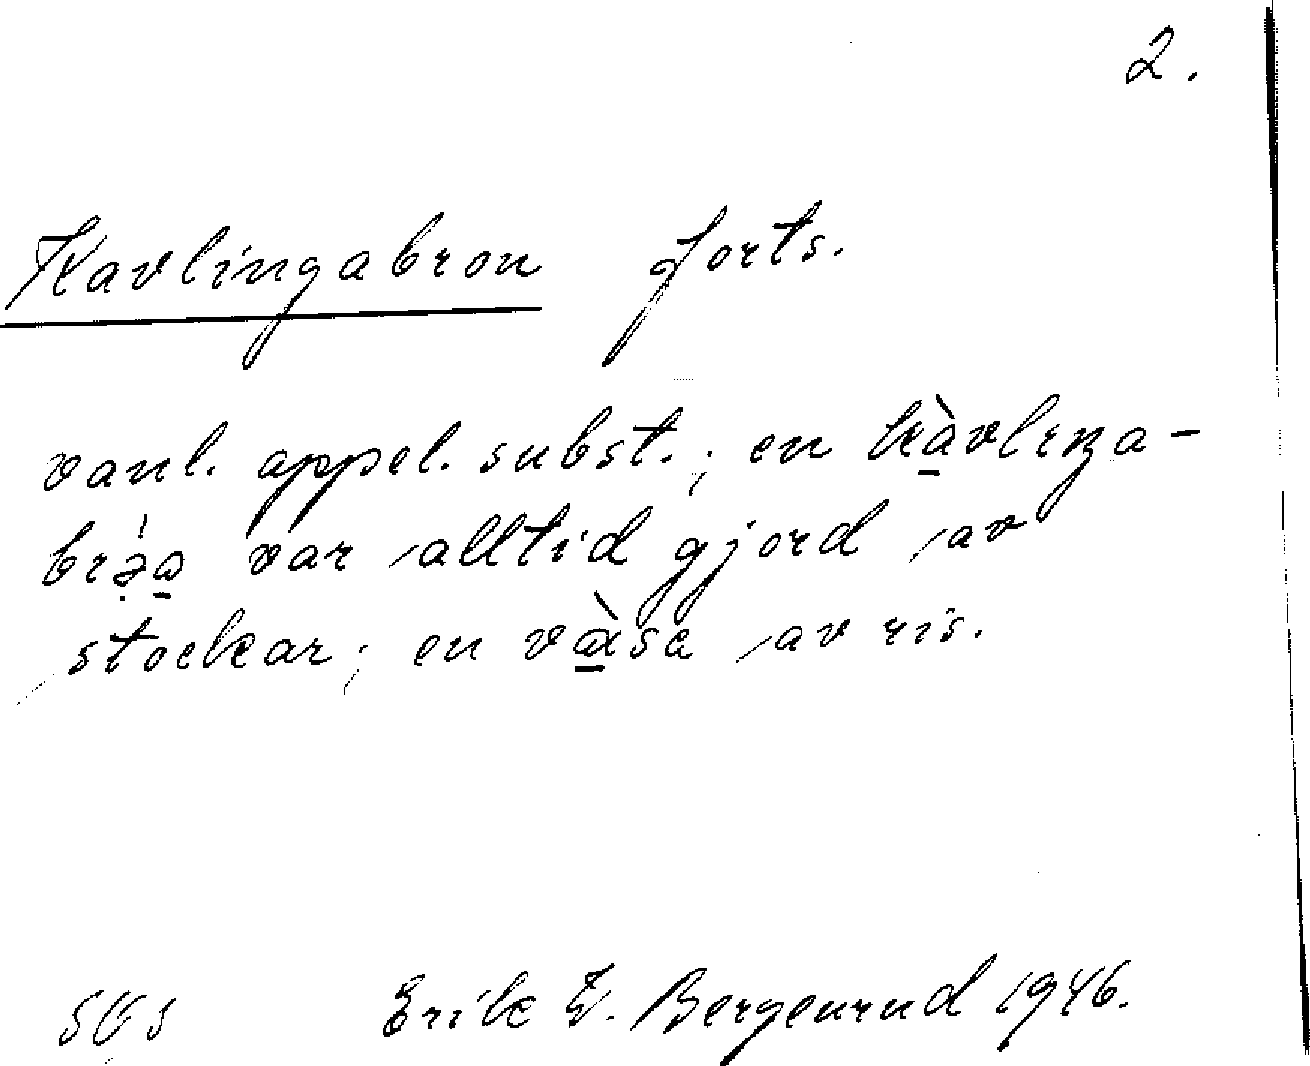 2.
Kavlingabron forts.
vanl. appel. subst.; en kàvlıŋa-
brǝ́a var alltid gjord av
stockar; en vàsa av ris.
Erik E. Bergenrud 1946.